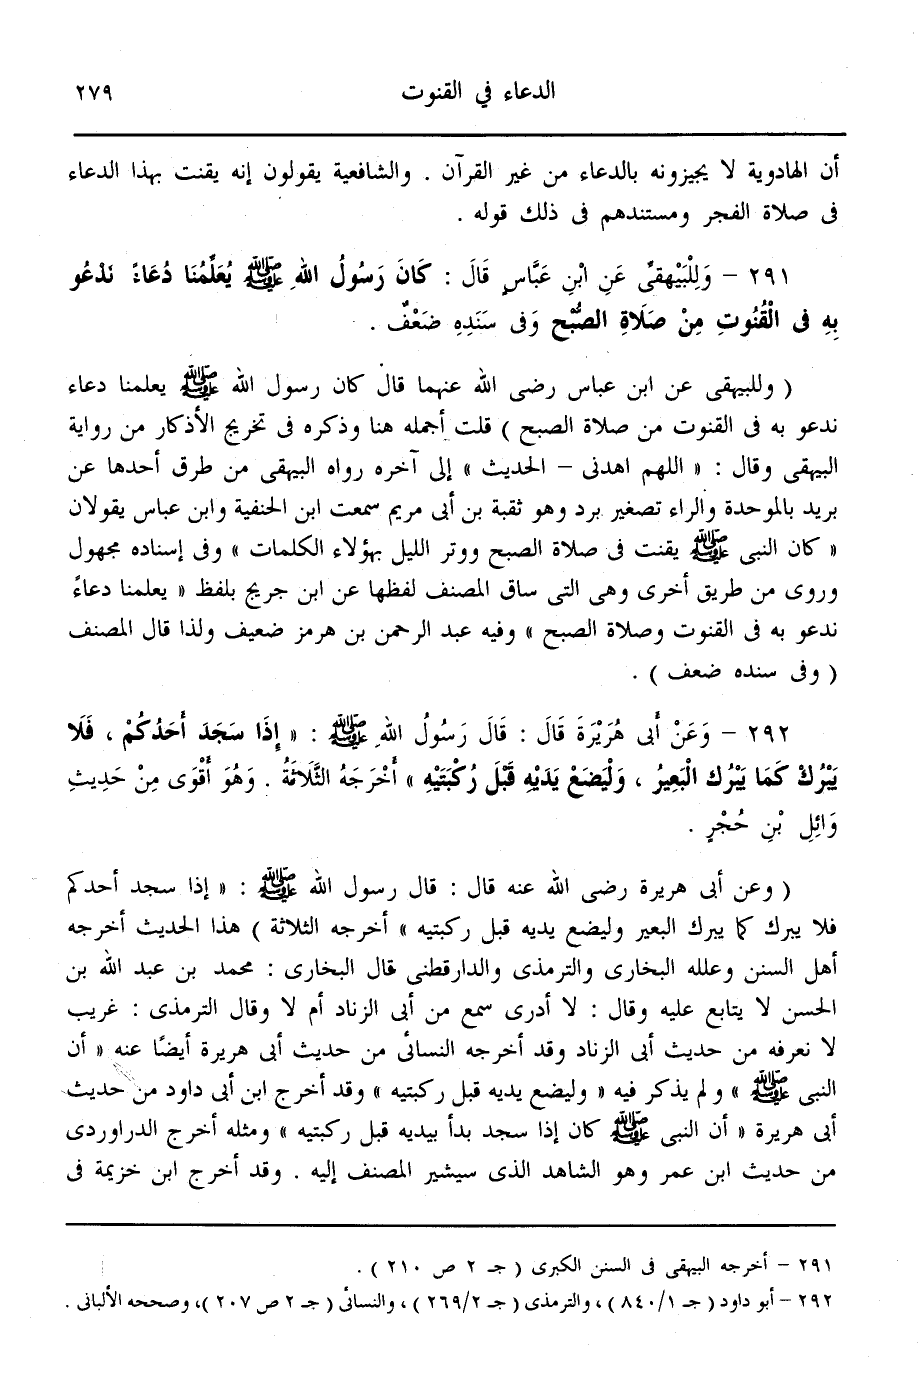 الدعاء في القنوت ٢٧٩
أن الهادوية لا يجيزونه بالدعاء من غير القرآن . والشافعية يقولون إنه يقنت بهذا الدعاء
فى صلاة الفجر ومستندهم فى ذلك قوله .
٢٩١ – وَلِلْبَيْهقىِّ عَنِ ابْنِ عَبَّاسٍ قَالَ : كَانَ رَسُولُ اللهِ ﷺ يُعَلِّمُنَا دُعَاءً نَدْعُو
بِهِ فى الْقُنُوتِ مِنْ صَلَاةِ الصُّبْحِ وَفى سَنَدِهِ ضَعْفٌ .
( وللبيهقى عن ابن عباس رضى الله عنهما قال كان رسول الله ﷺ يعلمنا دعاء
ندعو به فى القنوت من صلاة الصبح ) قلت أجمله هنا وذكره فى تخريج الأذكار من رواية
البيهقى وقال : « اللهم اهدنى – الحديث » إلى آخره رواه البيهقى من طرق أحدها عن
بريد بالموحدة والراء تصغير برد وهو ثقبة بن أبى مريم سمعت ابن الحنفية وابن عباس يقولان
« كان النبى ﷺ يقنت فى صلاة الصبح ووتر الليل بهؤلاء الكلمات » وفى إسناده مجهول
وروى من طريق أخرى وهى التى ساق المصنف لفظها عن ابن جريج بلفظ « يعلمنا دعاءً
ندعو به فى القنوت وصلاة الصبح » وفيه عبد الرحمن بن هرمز ضعيف ولذا قال المصنف
( وفى سنده ضعف ) .
٢٩٢ – وَعَنْ أَبى هُرَيْرَةَ قَالَ : قَالَ رَسُولُ اللهِ ﷺ : « إِذَا سَجَدَ أَحَدُكُمْ ، فَلَا
يَبْرُكْ كَمَا يَبْرُك الْبَعِيرُ ، وَلْيَضَعْ يَدَيْهِ قَبْلَ رُكْبَتَيْهِ » أَخْرَجَهُ الثَّلَاثَةُ . وَهُوَ أَقْوَى مِنْ حَدِيثِ
وَائِلِ بْنِ حُجْرٍ .
( وعن أبى هريرة رضى الله عنه قال : قال رسول الله ﷺ : « إذا سجد أحدكم
فلا يبرك كما يبرك البعير وليضع يديه قبل ركبتيه » أخرجه الثلاثة ) هذا الحديث أخرجه
أهل السنن وعلله البخارى والترمذى والدارقطنى قال البخارى : محمد بن عبد الله بن
الحسن لا يتابع عليه وقال : لا أدرى سمع من أبى الزناد أم لا وقال الترمذى : غريب
لا نعرفه من حديث أبى الزناد وقد أخرجه النسائى من حديث أبى هريرة أيضًا عنه « أن
النبى ﷺ » ولم يذكر فيه « وليضع يديه قبل ركبتيه » وقد أخرج ابن أبى داود من حديث
أبى هريرة « أن النبى ﷺ كان إذا سجد بدأ بيديه قبل ركبتيه » ومثله أخرج الدراوردى
من حديث ابن عمر وهو الشاهد الذى سيشير المصنف إليه . وقد أخرج ابن خزيمة فى
٢٩١ – أخرجه البيهقى فى السنن الكبرى ( جـ ٢ ص ٢١٠ ) .
٢٩٢ – أبو داود ( جـ ٨٤٠/١ ) ، والترمذى ( جـ ٢٦٩/٢ ) ، والنسائى ( جـ ٢ ص ٢٠٧ ) ، وصححه الألبانى .